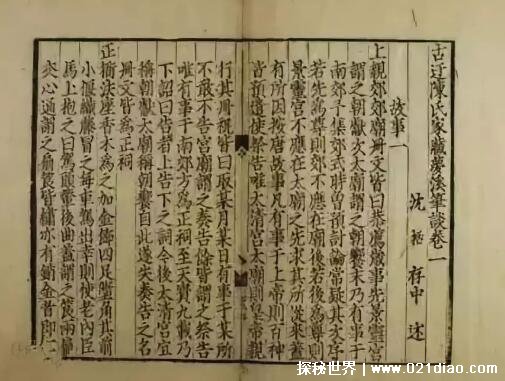 古迂陳氏家藏夢溪筆談卷一
沈括存中述
故事一
上親郊郊廟冊文皆曰恭薦歲事先景靈宮
謂之朝獻次太廟謂之朝饗末乃有事于
南郊予集郊式時曽預討論常疑其次序
若先為尊則郊不應在廟後若後為尊則
景靈宮不應在太廟之先求其所從來蓋
有所因按唐故事凡有事于上帝則百神
皆預遣使祭告唯太清宮太廟則皇帝親
行其冊祝皆曰取某月某日有事于某所
不敢不告宮廟謂之奏告餘皆謂之祭告
唯有事于南郊方為正祠至天寶九載乃
下詔曰告者上告下之詞今後太清宮宜
稱朝獻太廟稱朝饗自此遂失奏告之名
冊文皆為正祠
正衙法座香木為之加金飾四足墮角其前
小偃織藤冒之每車駕出幸則使老內臣
馬上抱之曰駕頭輦後曲蓋謂之筤兩扇
夾心通謂之扇筤皆繡亦有銷金者即
探秘世界 | www.021diao.com